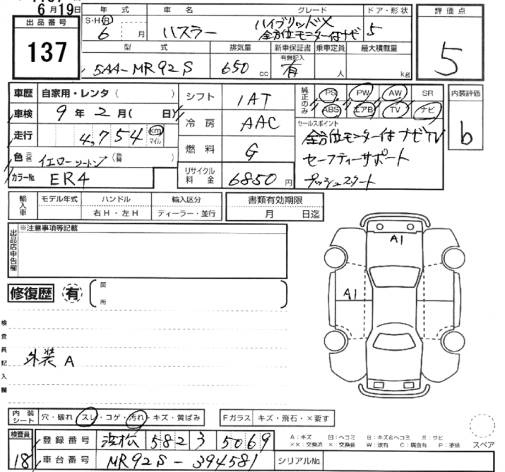 6月19日
出品番号
137
年式
S・H・R
6 月
車名
ハスラー
グレード
ハイブリッドX
全方位モニター付ナビ
ドア・形状
5
評価点
5
型式
5AA-MR92S
排気量
650 cc
新車保証書
有無記入
有
乗車定員
人
最大積載量
kg
車歴 自家用・レンタ( )
車検 9年2月( 日)
走行 4,754 km マイル
色 イエローツートン
カラーNo. ER4
シフト 1AT
冷房 AAC
燃料 G
リサイクル料金 6850円
純正のみ
PS PW AW SR
ABS エアB TV ナビ
内装評価
b
セールスポイント
全方位モニター付ナビTV
セーフティーサポート
プッシュスタート
輸入車
モデル年式
ハンドル
右H・左H
輸入区分
ディーラー・並行
書類有効期限
月 日迄
出品店申告欄
※注意事項等記載
修復歴 有
箇所
検査員記入欄
外装A
A1
A1
内装シート 穴・破れ・スレ・コゲ・汚れ・キズ・黄ばみ
Fガラス キズ・飛石・×要す
検査員
18
登録番号 浜松 582 う 5069
車台番号 MR92S-394581
シリアルNo.
スペア